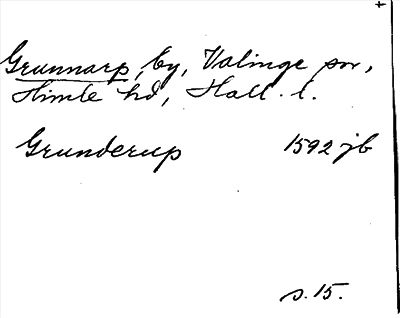 Grunnarp, by, Valinge sn,
Himle hd, Hall. l.
Grunderup 1592 jb
s. 15.